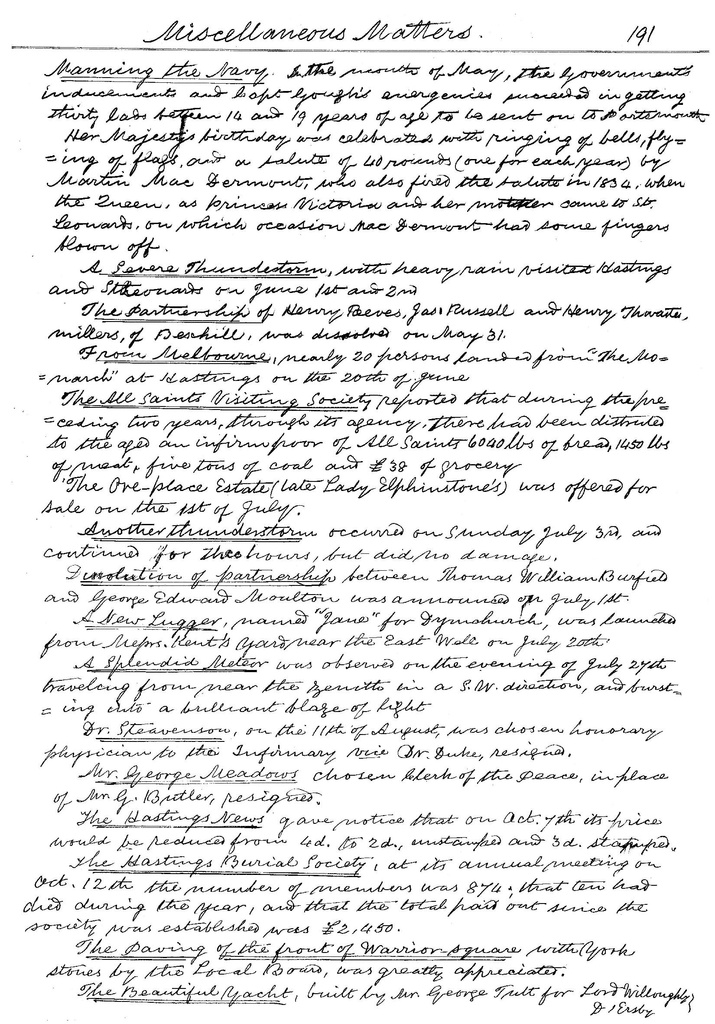 Miscellaneous Matters. 191
Manning the Navy. In the month of May, the Government's
inducements and Capt Gough's energenies succeeded in getting
thirty lads between 14 and 19 years of age to be sent on to Portsmouth
Her Majesty's birthday was celebrated with ringing of bells, fly=
=ing of flags, and a salute of 40 rounds (one for each year) by
Martin Mac Dermont, who also fired the salute in 1834, when
the Queen, as Princess Victoria and her mother came to St.
Leonards, on which occasion Mac Dermont had some fingers
blown off.
A Severe Thunderstorm, with heavy rain visited Hastings
and St Leonards on June 1st and 2nd
The Partnership of Henry Reeves, Jas. Russell and Henry Thwaites,
millers, of Bexhill, was dissolved on May 31.
From Melbourne, nearly 20 persons landed from "The Mo=
=narch" at Hastings on the 20th of June
The All Saints Visiting Society reported that during the pre=
=ceding two years, through its agency, there had been distributed
to the aged an infirm poor of All Saints 6040 lbs of bread, 1450 lbs
of meat, five tons of coal and £38 of grocery
The Ore-place Estate (late Lady Elphinstone's) was offered for
sale on the 1st of July.
Another thunderstorm occurred on Sunday July 3rd, and
continued for hours, but did no damage.
Dissolution of partnership between Thomas William Burfield
and George Edward Moulton was announced on July 1st
A New Lugger, named "Jane" for Dymchurch, was launched
from Messrs. Kent's Yard, near the East Well on July 20th
A Splendid Meteor was observed on the evening of July 27th
traveling from near the zenith in a S.W. direction, and burst=
=ing into a brilliant blaze of light
Dr. Steavenson, on the 11th of August, was chosen honorary
physician to the Infirmary vice Dr. Duke, resigned.
Mr. George Meadows chosen Clerk of the Peace, in place
of Mr G. Butler, resigned.
The Hastings News gave notice that on Oct. 7th its price
would be reduced from 4d. to 2d., unstamped and 3d. stamped.
The Hastings Burial Society, at its annual meeting on
Oct. 12th the number of members was 874; that ten had
died during the year, and that the total paid out since the
society was established was £2,450.
The Paving of the front of Warrior-square with York
stones by the Local Board, was greatly appreciated.
The Beautiful Yacht, built by Mr George Tutt for Lord Willoughby
D'Ersby